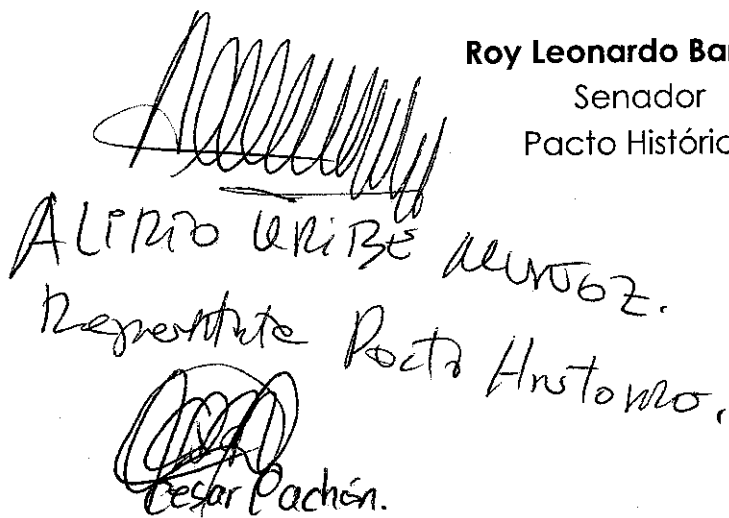 Roy Leonardo Bar
Senador
Pacto Históric
ALIRIO URIBE MUÑOZ.
Representante Pacto Historico.
Cesar Pachón.